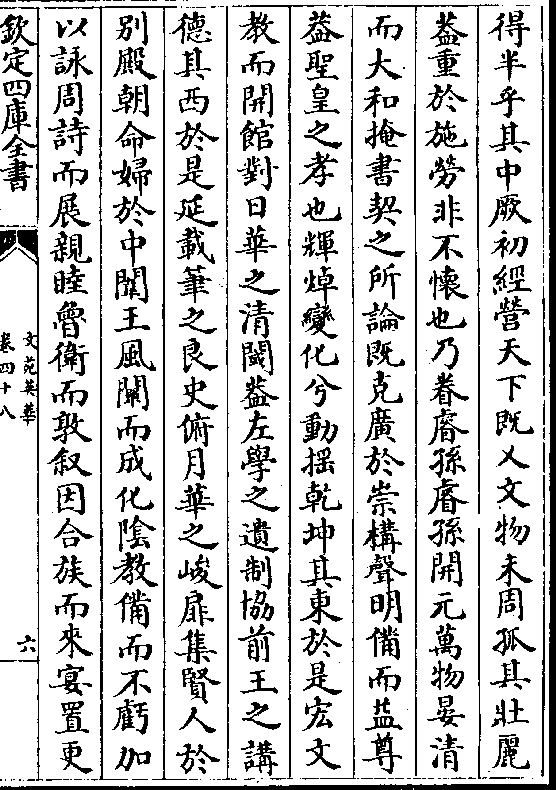 得半乎其中厥初經營天下既乂文物未周孤其壯麗
葢重於施勞非不懷也乃眷睿孫睿孫開元萬物晏清
而大和掩書契之所論既克廣於崇構聲明備而益尊
葢聖皇之孝也輝焯變化兮動揺乾坤其東於是宏文
教而開館對日華之清閟葢左學之遺制協前王之講
德其西於是延載筆之良史俯月華之峻扉集賢人於
別殿朝命婦於中闈王風闡而成化陰教備而不虧加
以詠周詩而展親睦魯衛而敦叙因合族而來宴置更
欽定四庫全書
文苑英華
卷四十八
六